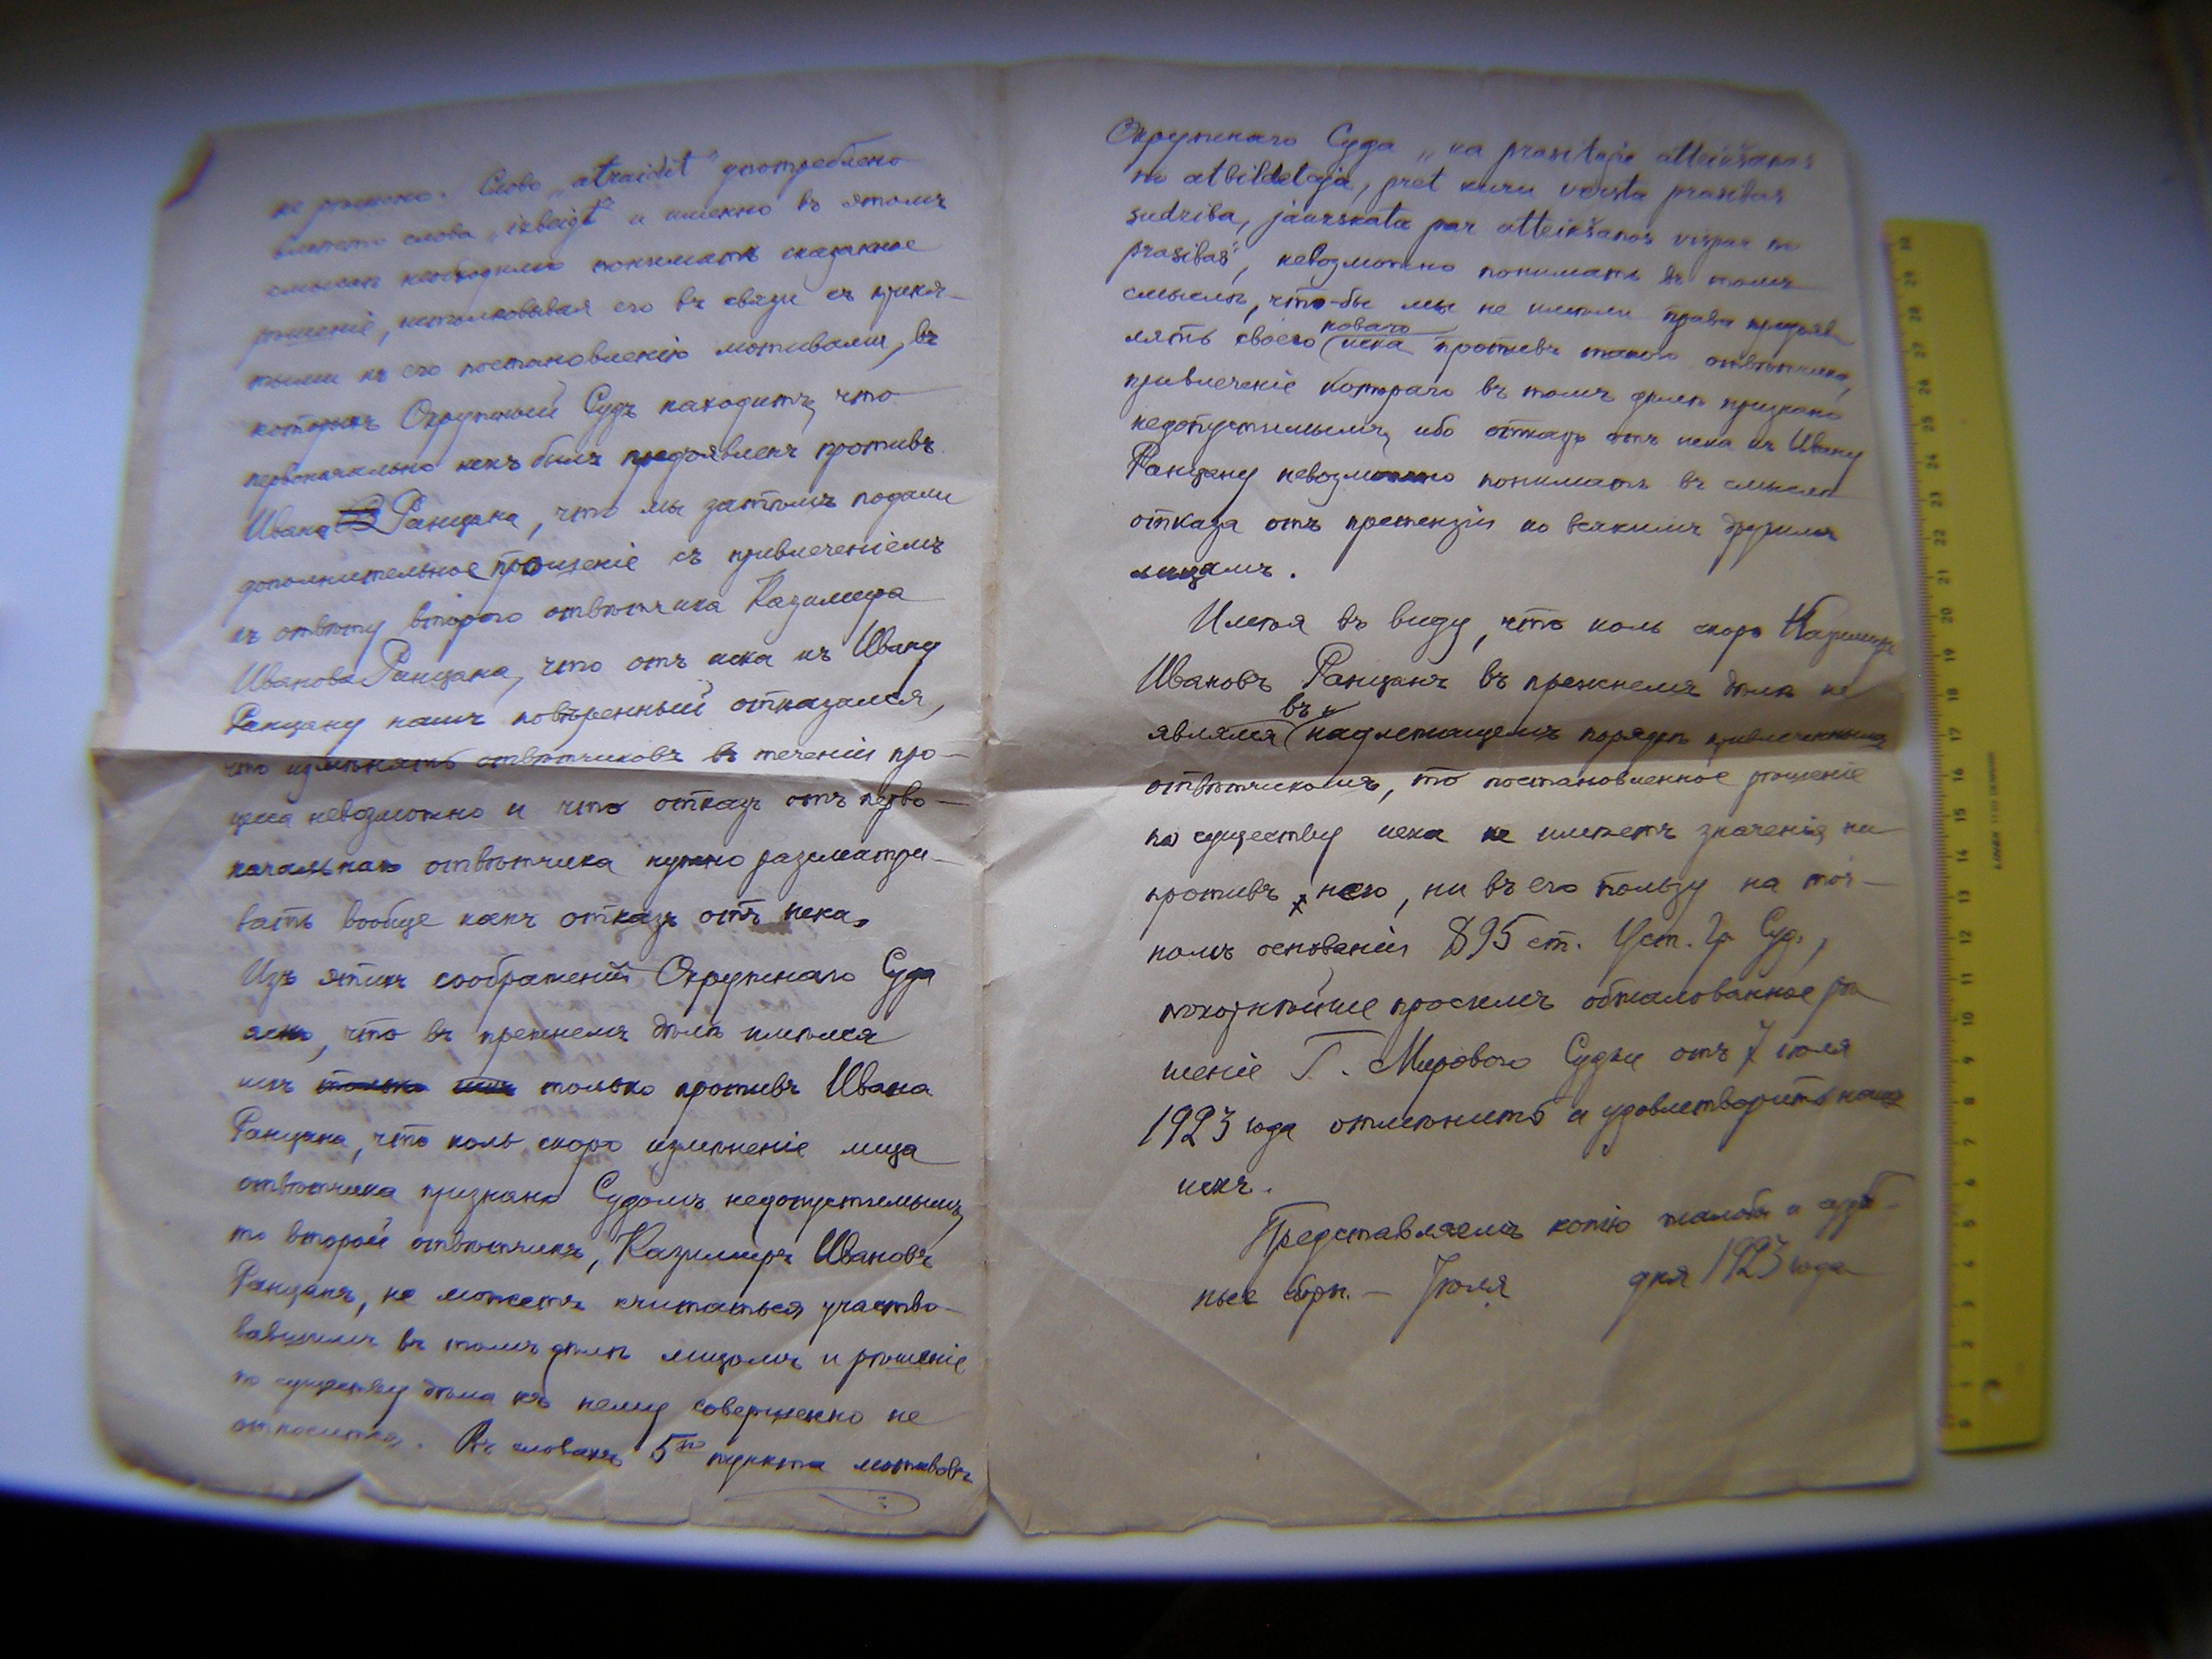 не рѣшено. Слово „atraidit" употреблено
вмѣсто слова „izbeigt" и именно въ этомъ
смыслѣ необходимо понимать сказанное
рѣшеніе, истолковывая его въ связи съ приня-
тыми къ его постановленію мотивами, въ
которыхъ Окружный Судъ находитъ, что
первоначально искъ былъ предъявленъ противъ
Ивана Ранцана, что мы затѣмъ подали
дополнительное прошеніе съ привлеченіемъ
къ отвѣту второго отвѣтчика Казимира
Иванова Ранцана, что отъ иска къ Ивану
Ранцану нашъ повѣренный отказался,
что измѣнять отвѣтчиковъ въ теченіи про-
цесса невозможно и что отказъ отъ перво-
начальнаго отвѣтчика нужно разсматри-
вать вообще какъ отказъ отъ иска.
Изъ этихъ соображеній Окружнаго Суда
ясно, что въ прежнемъ дѣлѣ имѣлся
искъ только противъ Ивана
Ранцана, что коль скоро измѣненіе лица
отвѣтчика признано Судомъ недопустимымъ,
то второй отвѣтчикъ, Казимиръ Ивановъ
Ранцанъ, не можетъ считаться участво-
вавшимъ въ томъ дѣлѣ лицомъ и рѣшеніе
по существу дѣла къ нему совершенно не
относится. Въ словахъ 5го пункта мотивовъ
Окружнаго Суда „ka prasitaju atteikšanas
no atbildetaja, pret kuru versta prasibas
sudziba, jauzskata par atteikšanos vispar no
prasibas", невозможно понимать въ томъ
смыслѣ, что-бы мы не имѣли права предъяв-
лять своего новаго иска противъ такого отвѣтчика,
привлеченіе котораго въ томъ дѣлѣ признано
недопустимымъ, ибо отказъ отъ иска къ Ивану
Ранцану невозможно понимать въ смыслѣ
отказа отъ претензіи ко всякимъ другимъ
лицамъ.
Имѣя въ виду, что коль скоро Казимиръ
Ивановъ Ранцанъ въ прежнемъ дѣлѣ не
являлся въ надлежащемъ порядкѣ привлеченнымъ
отвѣтчикомъ, то постановленное рѣшеніе
по существу иска не имѣетъ значенія ни
противъ него, ни въ его пользу на точ-
номъ основаніи 895 ст. Уст. Гр. Суд.,
покорнѣйше просимъ обжалованное рѣ-
шеніе Г. Мирового Судьи отъ 7 іюля
1923 года отмѣнить и удовлетворить нашъ
искъ.
Представляемъ копію жалобы и судеб-
ныя сбры. — Іюля дня 1923 года